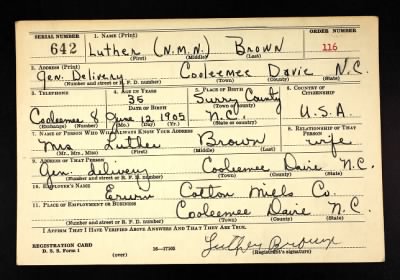 SERIAL NUMBER 1. NAME (Print) ORDER NUMBER
642 Luther (N.M.N.) Brown 116
(First) (Middle) (Last)
2. ADDRESS (Print)
Gen. Delivery Cooleemee Davie N.C.
(Number and street or R. F. D. number) (Town) (County) (State)
3. TELEPHONE 4. AGE IN YEARS 5. PLACE OF BIRTH 6. COUNTRY OF CITIZENSHIP
35 Surry County
DATE OF BIRTH (Town or county)
Cooleemee 8 June 12, 1905 N.C. U.S.A.
(Exchange) (Number) (Mo.) (Day) (Yr.) (State or country)
7. NAME OF PERSON WHO WILL ALWAYS KNOW YOUR ADDRESS 8. RELATIONSHIP OF THAT PERSON
Mrs Luther Brown wife
(Mr., Mrs., Miss) (First) (Middle) (Last)
9. ADDRESS OF THAT PERSON
Gen. delivery Cooleemee Davie N.C.
(Number and street or R. F. D. number) (Town) (County) (State)
10. EMPLOYER'S NAME
Erwin Cotton Mills Co.
11. PLACE OF EMPLOYMENT OR BUSINESS
Cooleemee Davie N.C.
(Number and street or R. F. D. number) (Town) (County) (State)
I AFFIRM THAT I HAVE VERIFIED ABOVE ANSWERS AND THAT THEY ARE TRUE.
REGISTRATION CARD
D. S. S. Form 1 (over) 16—17105 Luther Brown
(Registrant's signature)